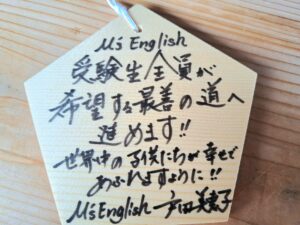 M's English
受験生全員が
希望する最善の道へ
進めます!!
世界中の子供たちが幸せで
あふれますように!!
M's English 戸田美